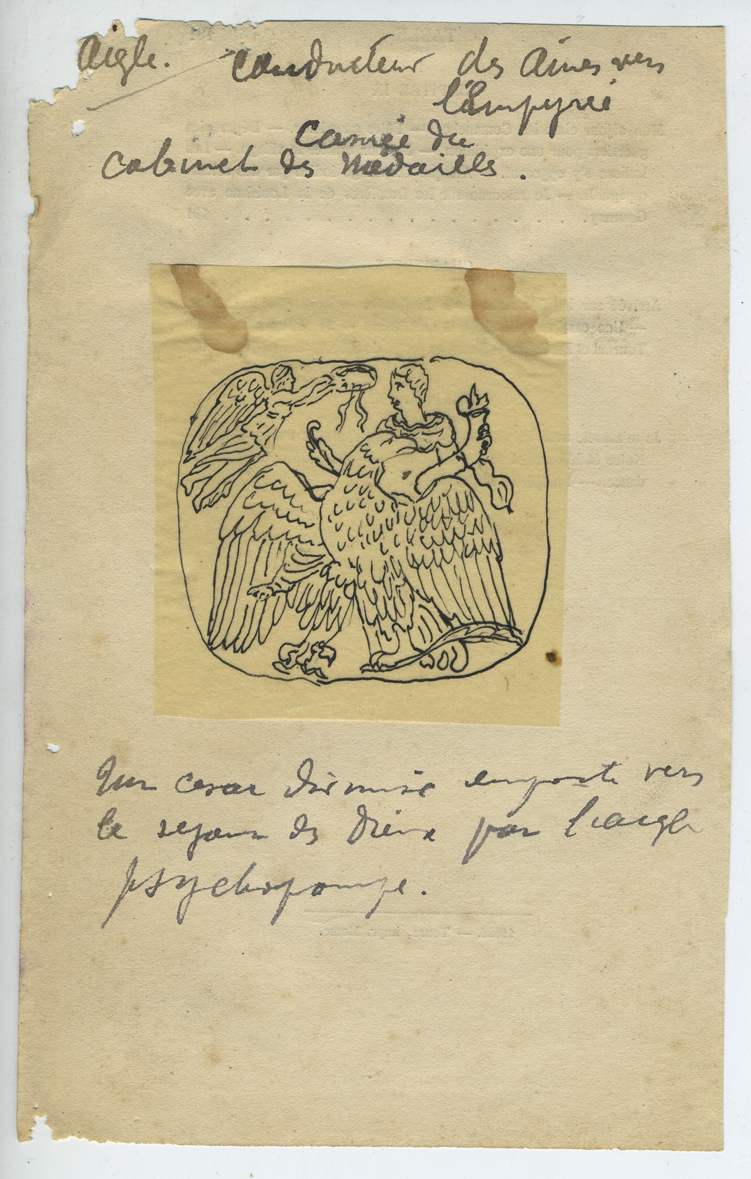 Aigle. Conducteur des âmes vers
l'Empyrée
Camée du
Cabinet des Médailles.
Un cesar divinisé emporté vers
le sejour des Dieux par l'aigle
psychopompe.